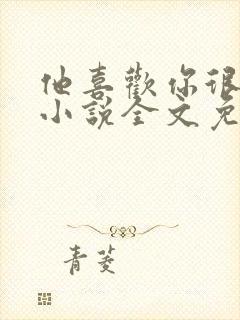 他喜歡你很
小說全文免
青菱